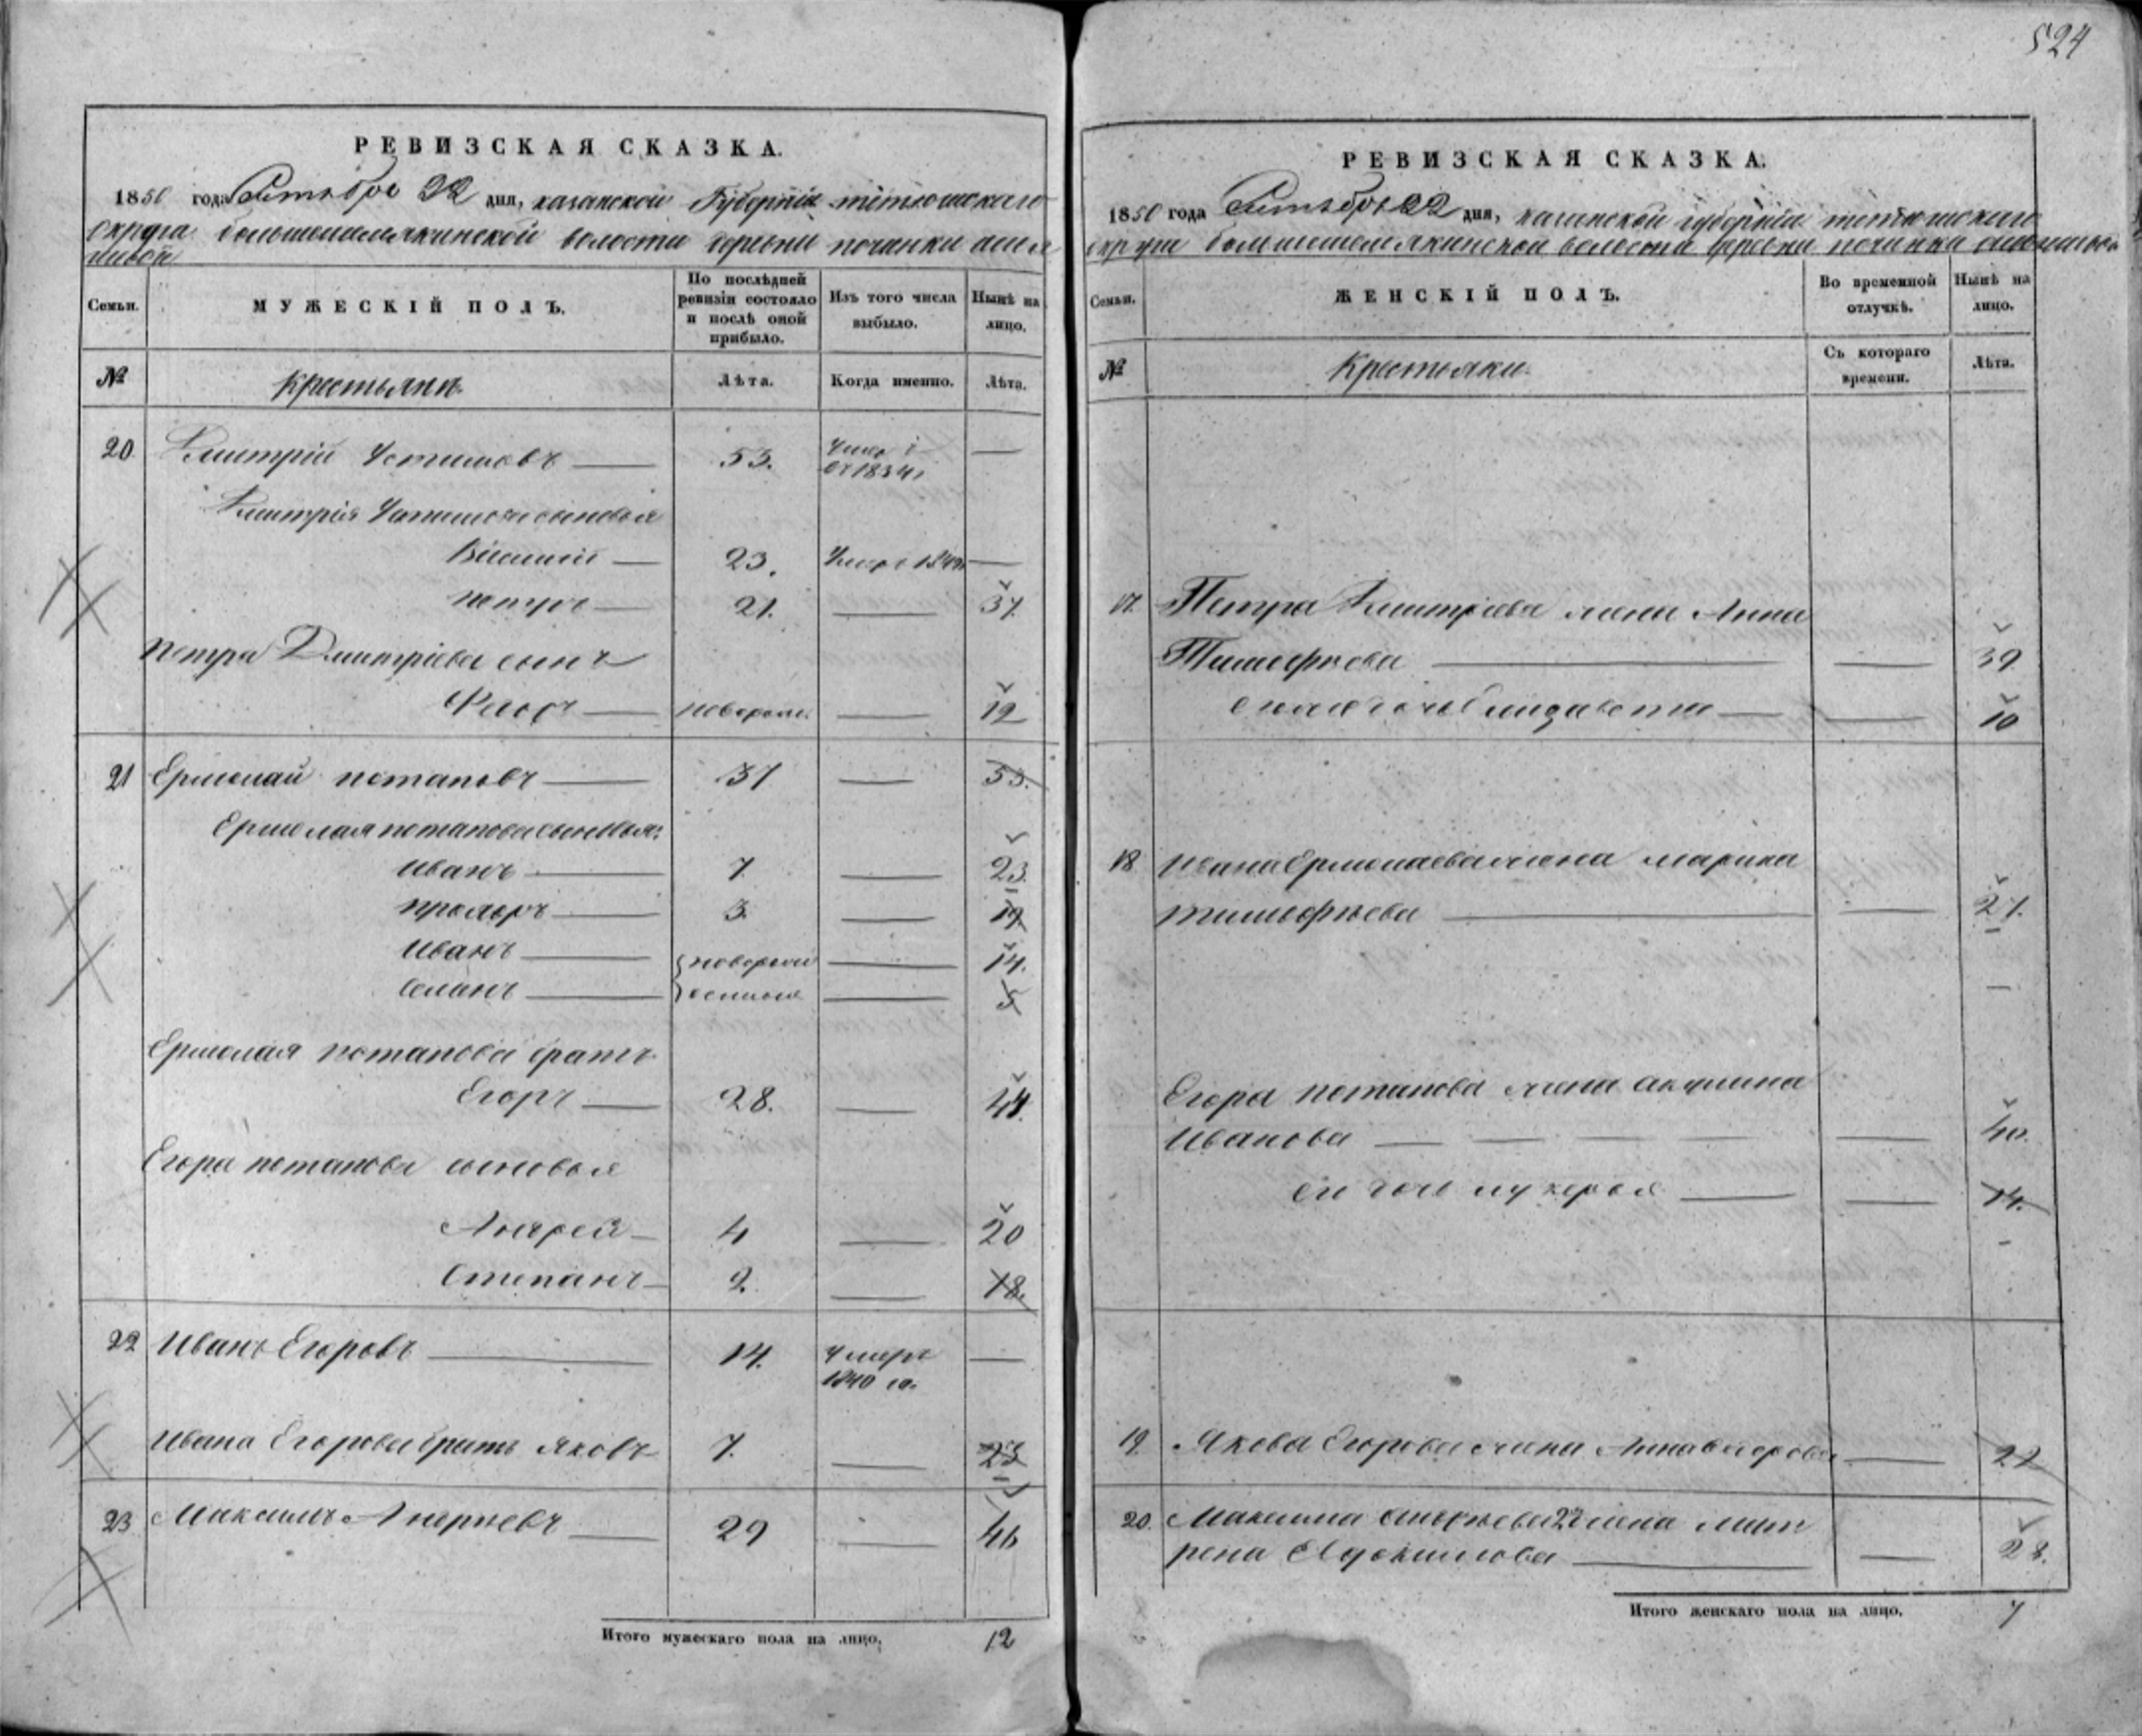 524
РЕВИЗСКАЯ СКАЗКА.
1850 года Сентября 22 дня, казанской Губернiи тетюшскаго
округа большешемякинской волости деревни починки
МУЖЕСКIЙ ПОЛЪ.
Семьи.
По послѣдней ревизiи состояло и послѣ оной прибыло.
Изъ того числа выбыло.
Нынѣ на лицо.
№ Крестьяне
Лѣта.
Когда именно.
Лѣта.
20 Дмитрiй Устимовъ 53. —
1834
Дмитрiя Устимова сыновья
Василiй 23. Умеръ —
Петръ 21. — 37.
Петра Дмитрiева сынъ
новорож. — 12
21 Ермолай потаповъ 37 — 53.
Ермолая потапова сыновья:
Иванъ 7 — 23.
3. — 19
Иванъ новорож — 14.
— 5
Ермолая потапова братъ
Егоръ 28. — 44.
Егора потапова сыновья
Андрей 4 — 20
Степанъ 2. — 18.
22 Иванъ Егоровъ 14. Умеръ —
1840 го.
Ивана Егорова братъ Яковъ 7. — 23
23 Максимъ Андреевъ 29 — 46
Итого мужескаго пола на лицо. 12
РЕВИЗСКАЯ СКАЗКА.
1850 года Сентября 22 дня, казанской губернiи тетюшскаго
округа большешемякинской волости деревни починки
Семьи.
ЖЕНСКIЙ ПОЛЪ.
Во временной отлучкѣ.
Нынѣ на лицо.
№ Крестьянки
Съ котораго времени.
Лѣта.
17. Петра Дмитрiева жена Анна
Тимофѣева — 39.
дочь Елизавета — 10
18 Ивана Ермолаева жена марина
тимофѣева — 27.
Егора потапова жена акулина
Иванова — 40.
дочь лукерья — 14.
19. Якова Егорова жена Анна — 22
20. Максима Андреева жена
Евдокимова — 28.
Итого женскаго пола на лицо. 7